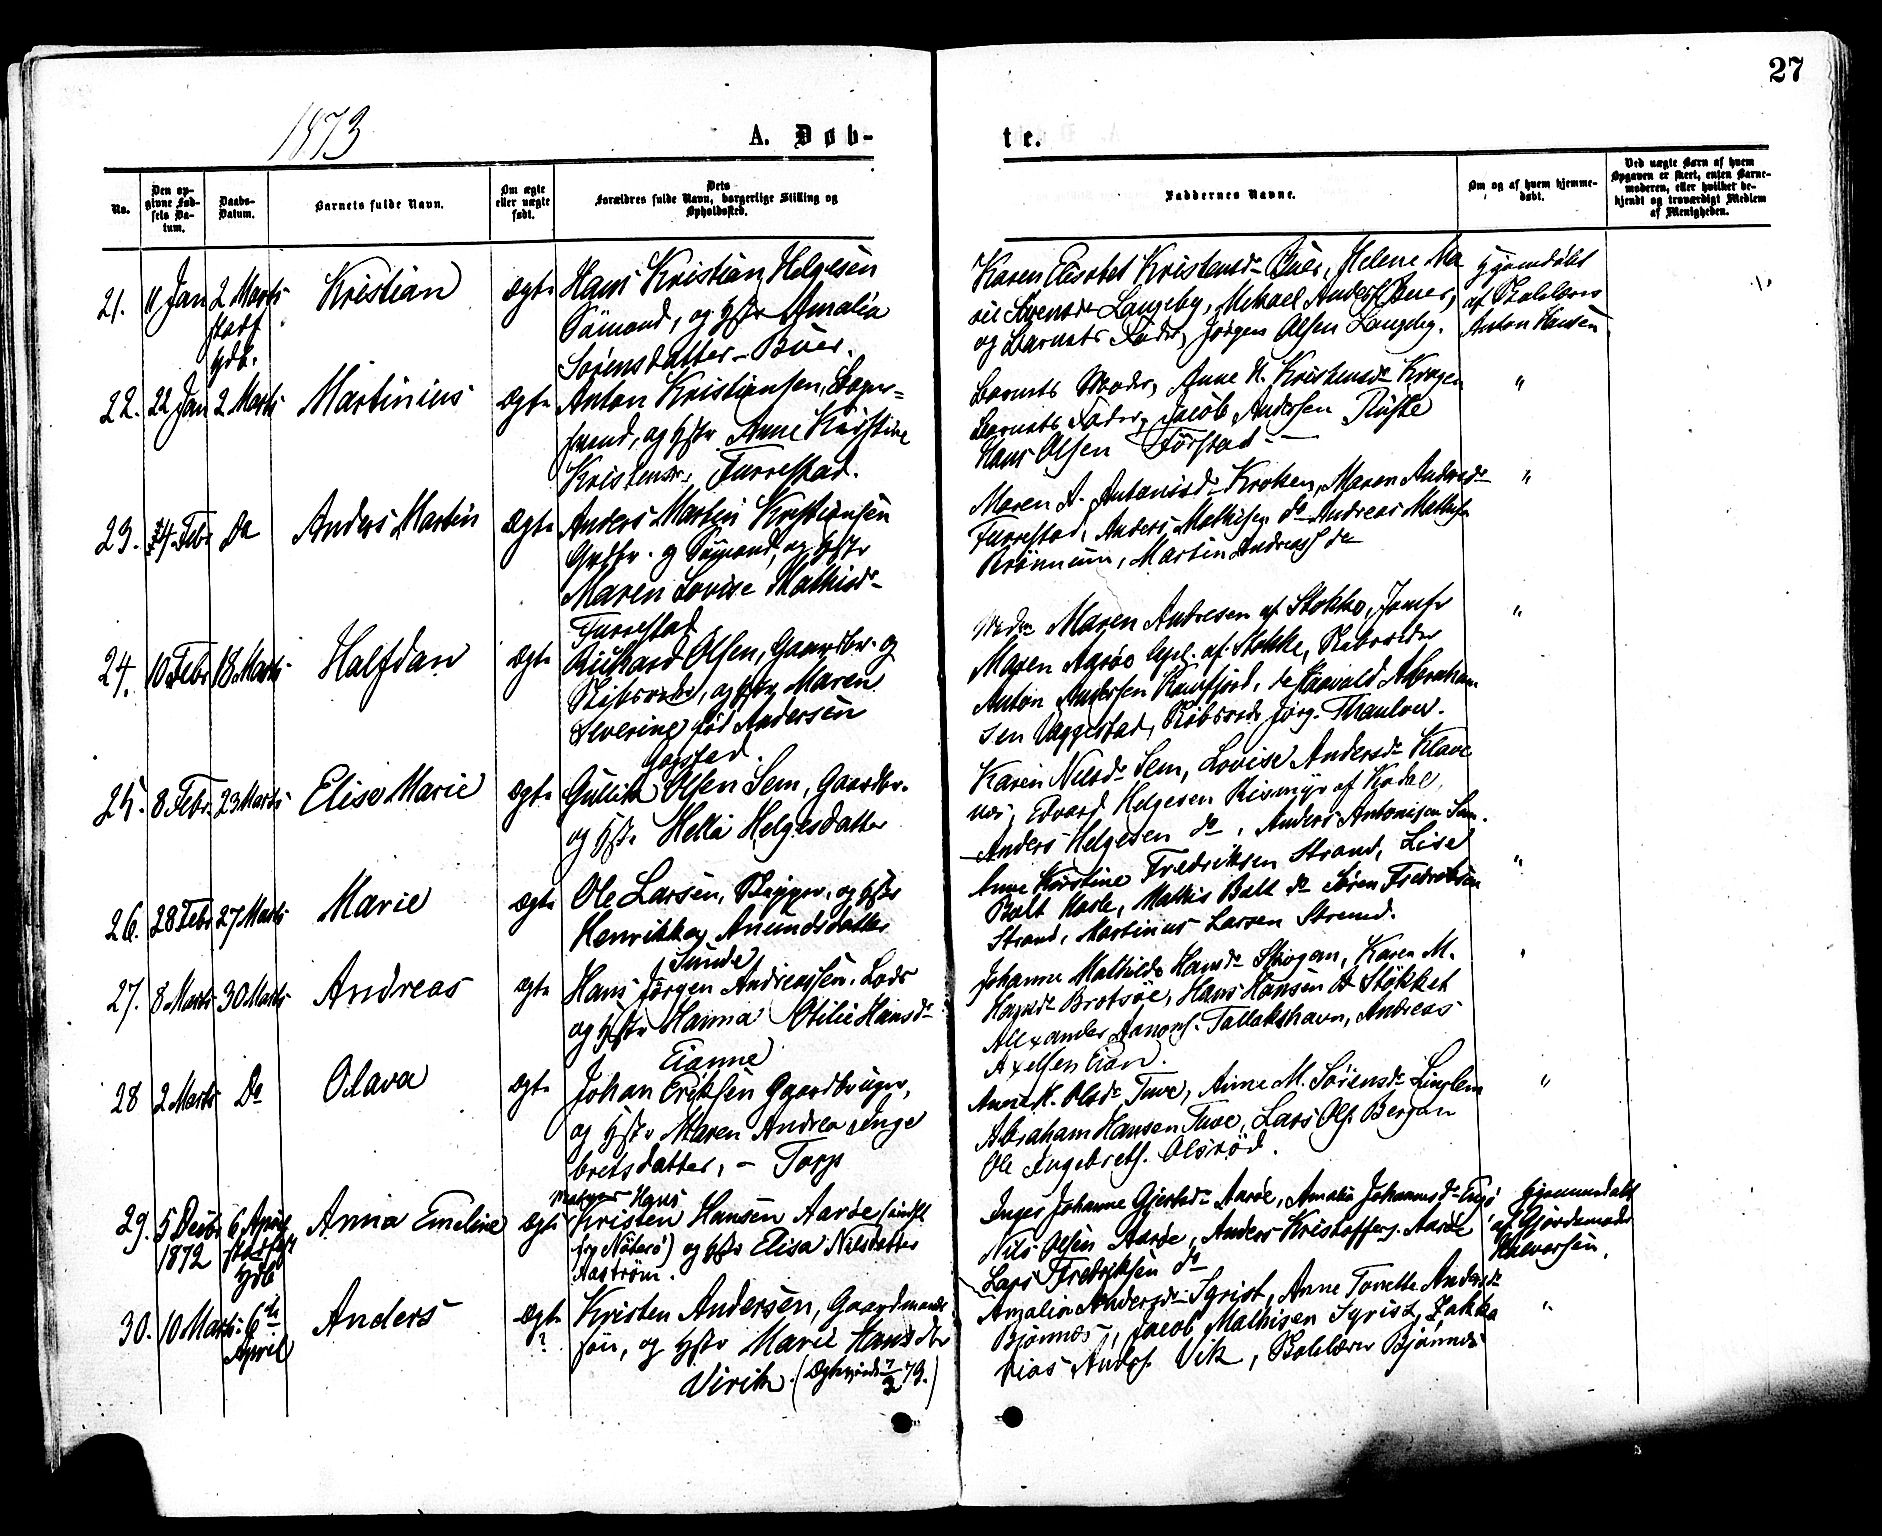 27
1873
A. Døb-
te.
No.
Den op-
givne Fød-
sels Da-
tum.
Daabs-
Datum.
Barnets fulde Navn.
Om ægte
eller uægte
født.
Dets
Forældres fulde Navn, borgerlige Stilling og
Opholdssted.
Faddernes Navne.
Om og af hvem hjemme-
døbt.
Ved uægte Børn af hvem
Opgaven er skeet, enten Barne-
moderen, eller hvilket be-
kjendt og troværdigt Medlem
af Menigheden.
21. 11 Jan 2 Marts Kristian ægte
Hans Kristian Helgesen
Sömand, og Hstr Amalia
Sörensdatter - Buer.
Karen Elisabet Kristensdr Buer, Helene Ma
Svensdr Langeby, Mikael Anders Buer,
og Barnets Fader, Jörgen Olsen Langeby.
Hjemdöbt
af Skolelærer
Anton Hansen
22. 22 Jan 2 Marts Martinius ægte
Anton Kristiansen,
og Hstr Anne Kirstine
Kristensdr. Furrestad.
Barnets Moder, Anne M. Kristensdr Krogen
Barnets Fader, Jacob Andersen
Hans Olsen
"
23. Febr Do Anders Martin ægte
Anders Martin Kristiansen
Grdbr. og Sömand, og Hstr
Maren Lovise Mathisdr
Furrestad
Maren A. Antonisdr Kroken, Maren Andersdr
Furrestad, Anders Mathisen do Andreas Mathis
Martin Andreas do
"
24. 10 Febr 18 Marts Halfdan ægte
Richard Olsen, Gaardbr. og
Skibsreder, og Hstr Maren
Severine född Andersen
Gogstad.
Madm Maren Andresen af Stokke, Jomfr
Maren Aaröe af Stokke, Skibsreder
Anton Andersen Abraham
sen Vaggestad, Skibsreder Jörg. Thaulow.
"
25. 8 Febr. 23 Marts Elise Marie ægte
Gullik Olsen Sem, Gaardbr.
og Hstr Hella Helgesdatter
Karen Nilsdr Sem, Lovise Andersdr Klave
næs, Edvard Helgesen af Kodal,
Anders Helgesen do, Anders Antonisen Sem.
26. 28 Febr 27 Marts Marie ægte
Ole Larsen, Skipper, og Hstr
Henrikke Amundsdatter
Sunde
Anne Kirstine Fredriksen Strand, Lise
Balt Mathis Balt do Sören Fredriksen
Strand, Martinus Larsen Strand.
"
27. 8 Marts 30 Marts Andreas ægte
Hans Jörgen Andreassen, Lods
og Hstr Hanna Otilie Hansdr
Johanne Mathilde Hansdr Skogan, Karen M.
Hansdr Brotsöe, Hans Hansen Stokket
Alexander Tallakshavn, Andreas
Axelsen
28 2 Marts Do Olava ægte
Johan Eriksen Gaardbruger,
og Hstr Maren Andrea Inge
bretsdatter, - Torp
Anne K. Olsdr Tuve, Anne M. Sörensdr
Abraham Hansen Tuve, Lars Ols. Bergan
Ole Ingebrets. Olsröd.
"
29. 5 Decbr 1872 6 April Anna Emeline ægte
Kristen Hansen Aaröe
fra Nöterö) og Hstr Elisa Nilsdatter
Aaström.
Inger Johanne Gjertsdr Aaröe, Amalia Johannesdr
Nils Olsen Aaröe, Anders Kristoffers. Aaröe
Lars Fredriksen do
Hjemmedöbt
af Gjordemoder
Halvorsen.
30. 10 Marts 6te April Anders ægte ?
Kristen Andersen, Gaardmands
sön, og Hstr Marie Hansdtr
Virik.
Amalia Andersdr Syrist, Anne Torette Andersdr
Bjönnes, Jacob Mathisen Syrist, Zaka
rias Anders. Vik, Skolelærer Bjönnes
"